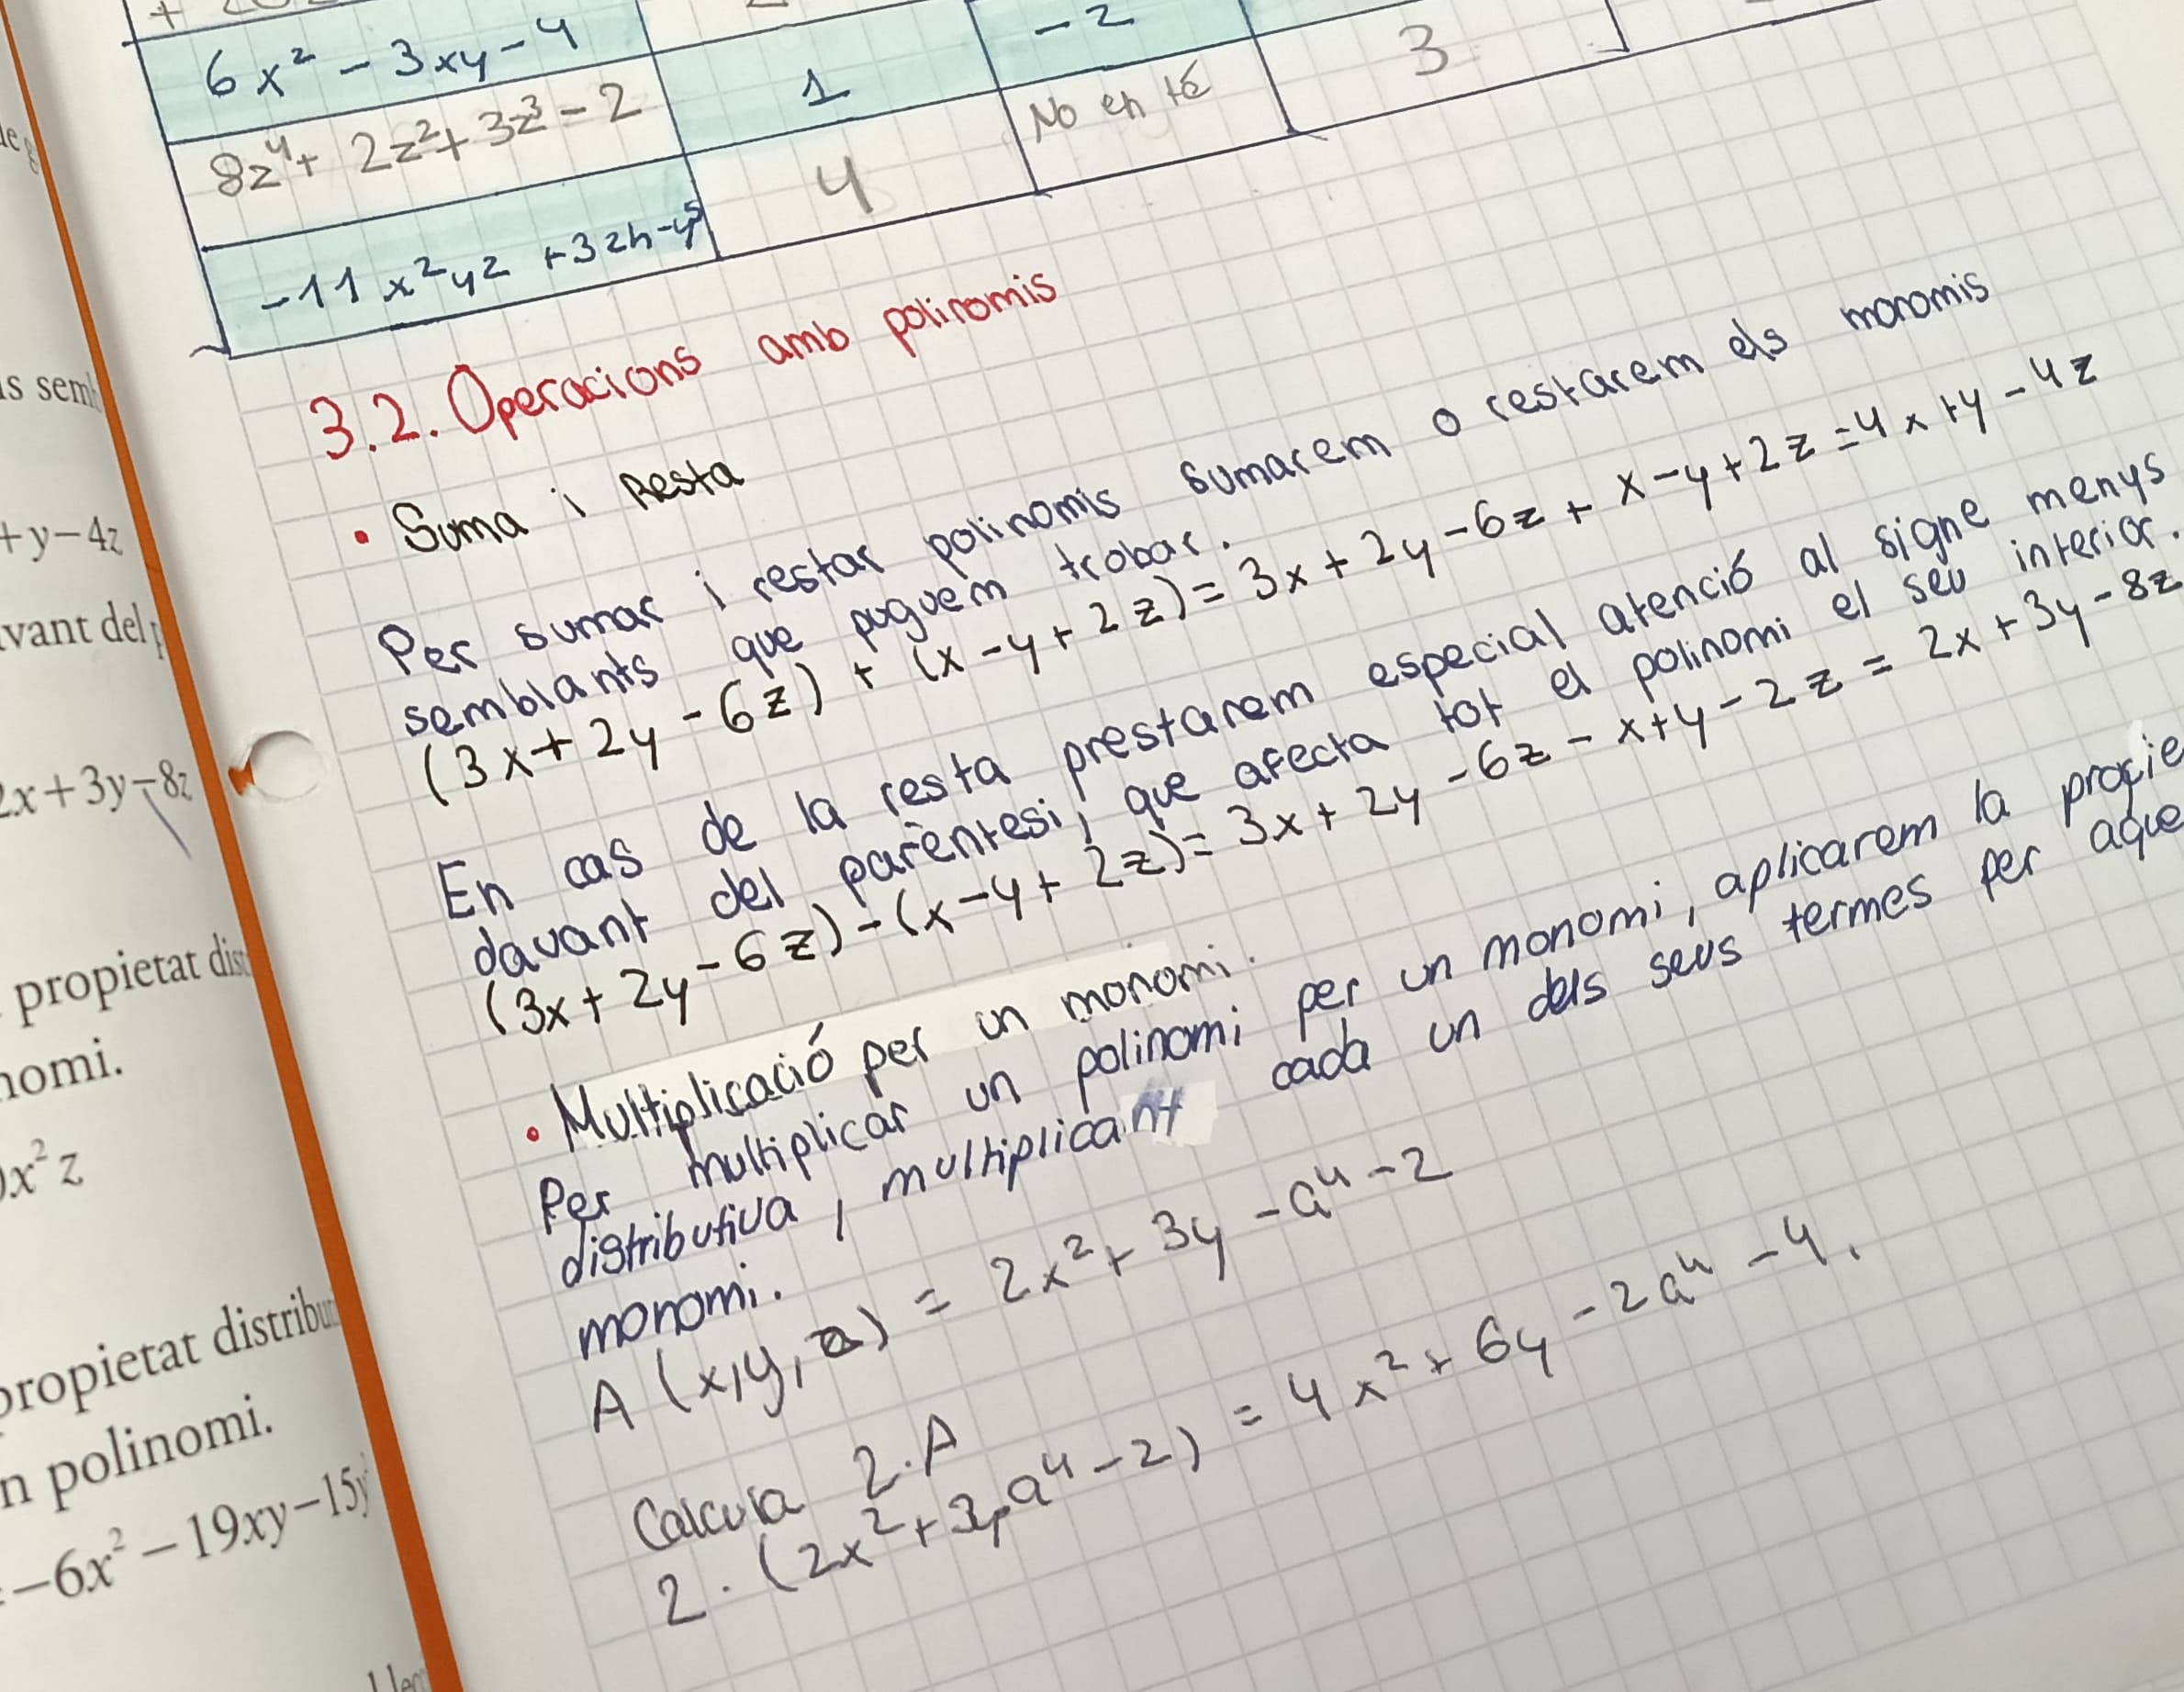 6x² - 3xy - 4
1
- 2
3
8z⁴ + 2z² + 3z³ - 2
4
No en té
-11x²yz + 3zh - y⁵
3.2. Operacions amb polinomis
• Suma i Resta
Per sumar i restar polinomis sumarem o restarem els monomis
semblants que puguem trobar.
(3x + 2y - 6z) + (x - y + 2z) = 3x + 2y - 6z + x - y + 2z = 4x + y - 4z
En cas de la resta prestarem especial atenció al signe menys
davant del parèntesi, que afecta tot el polinomi el seu interior.
(3x + 2y - 6z) - (x - y + 2z) = 3x + 2y - 6z - x + y - 2z = 2x + 3y - 8z
• Multiplicació per un monomi.
Per multiplicar un polinomi per un monomi, aplicarem la propie
distributiva, multiplicant cada un dels seus termes per aque
monomi.
A (x,y,a) = 2x² + 3y - a⁴ - 2
Calcula 2·A
2 · (2x² + 3y a⁴ - 2) = 4x² + 6y - 2a⁴ - 4.
+y−4z
vant del
2x+3y−8z
propietat dis
nomi.
x²z
propietat distribu
n polinomi.
−6x² − 19xy − 15y